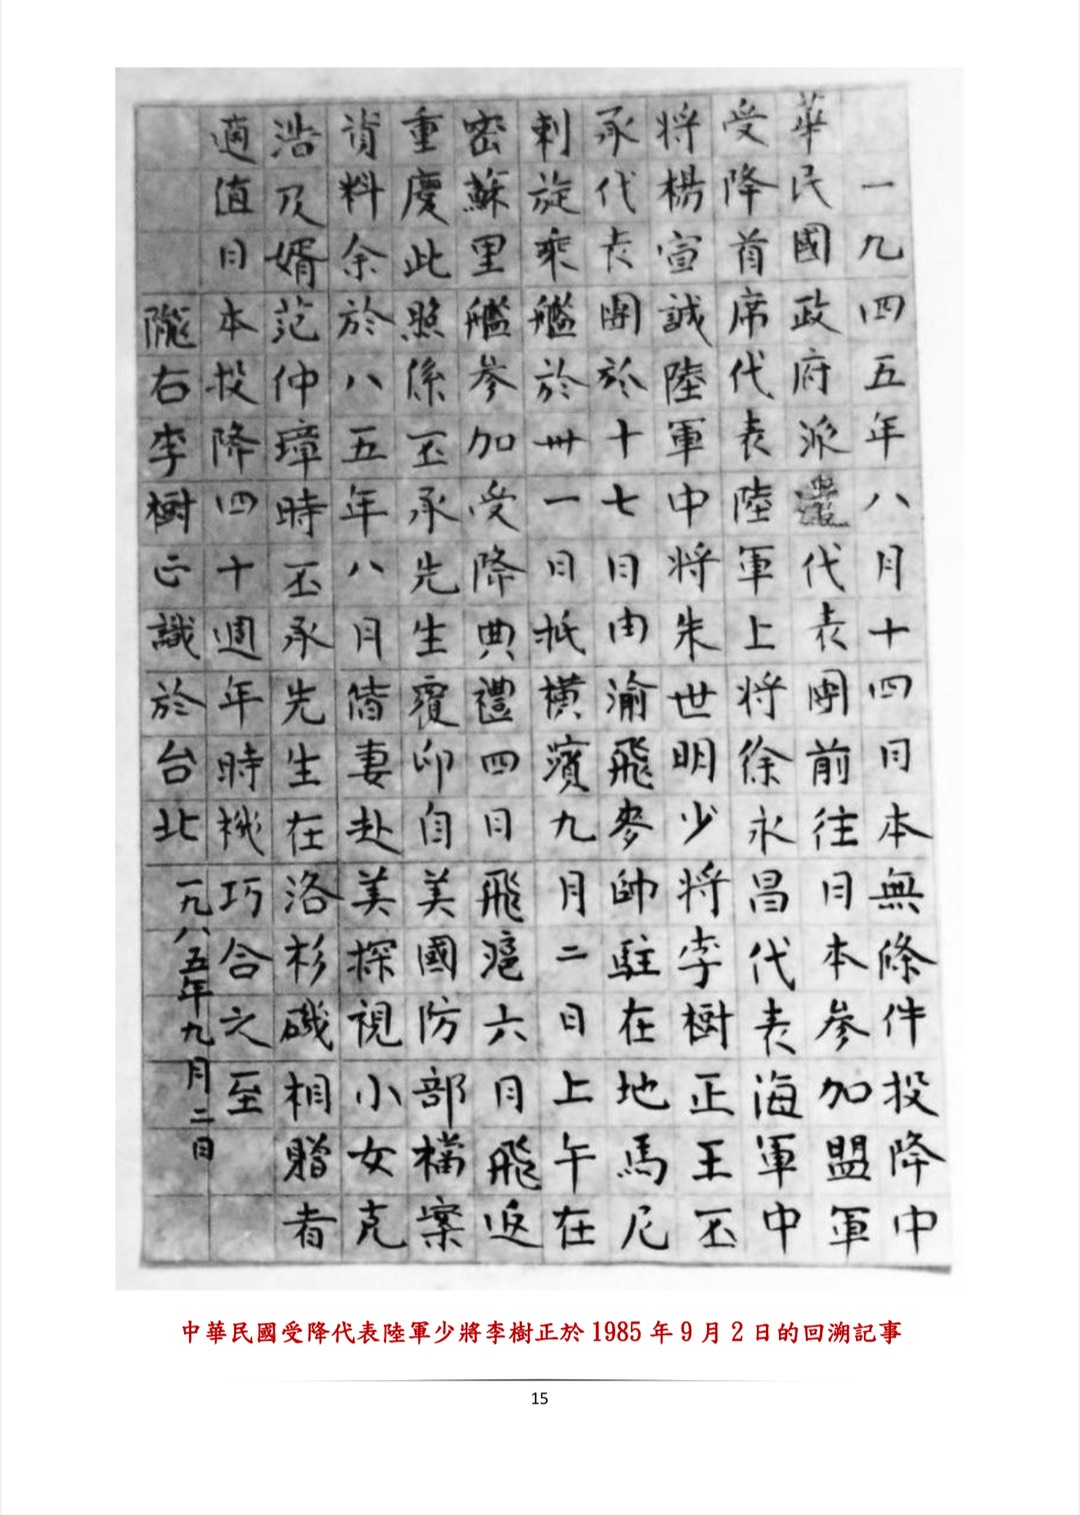 一九四五年八月十四日本無條件投降中
華民國政府派代表團前往日本參加盟軍
受降首席代表陸軍上將徐永昌代表海軍中
將楊宣誠陸軍中將朱世明少將李樹正王丕
承代表團於十七日由渝飛麥帥駐在地馬尼
剌旋乘艦於卅一日抵橫濱九月二日上午在
密蘇里艦參加受降典禮四日飛滬六日飛返
重慶此照係丕承先生覆印自美國防部檔案
資料余於八五年八月偕妻赴美探視小女克
浩及婿范仲璋時丕承先生在洛杉磯相贈者
適值日本投降四十週年時機巧合之至
隴右李樹正識於台北一九八五年九月二日
中華民國受降代表陸軍少將李樹正於 1985 年 9 月 2 日的回溯記事
15